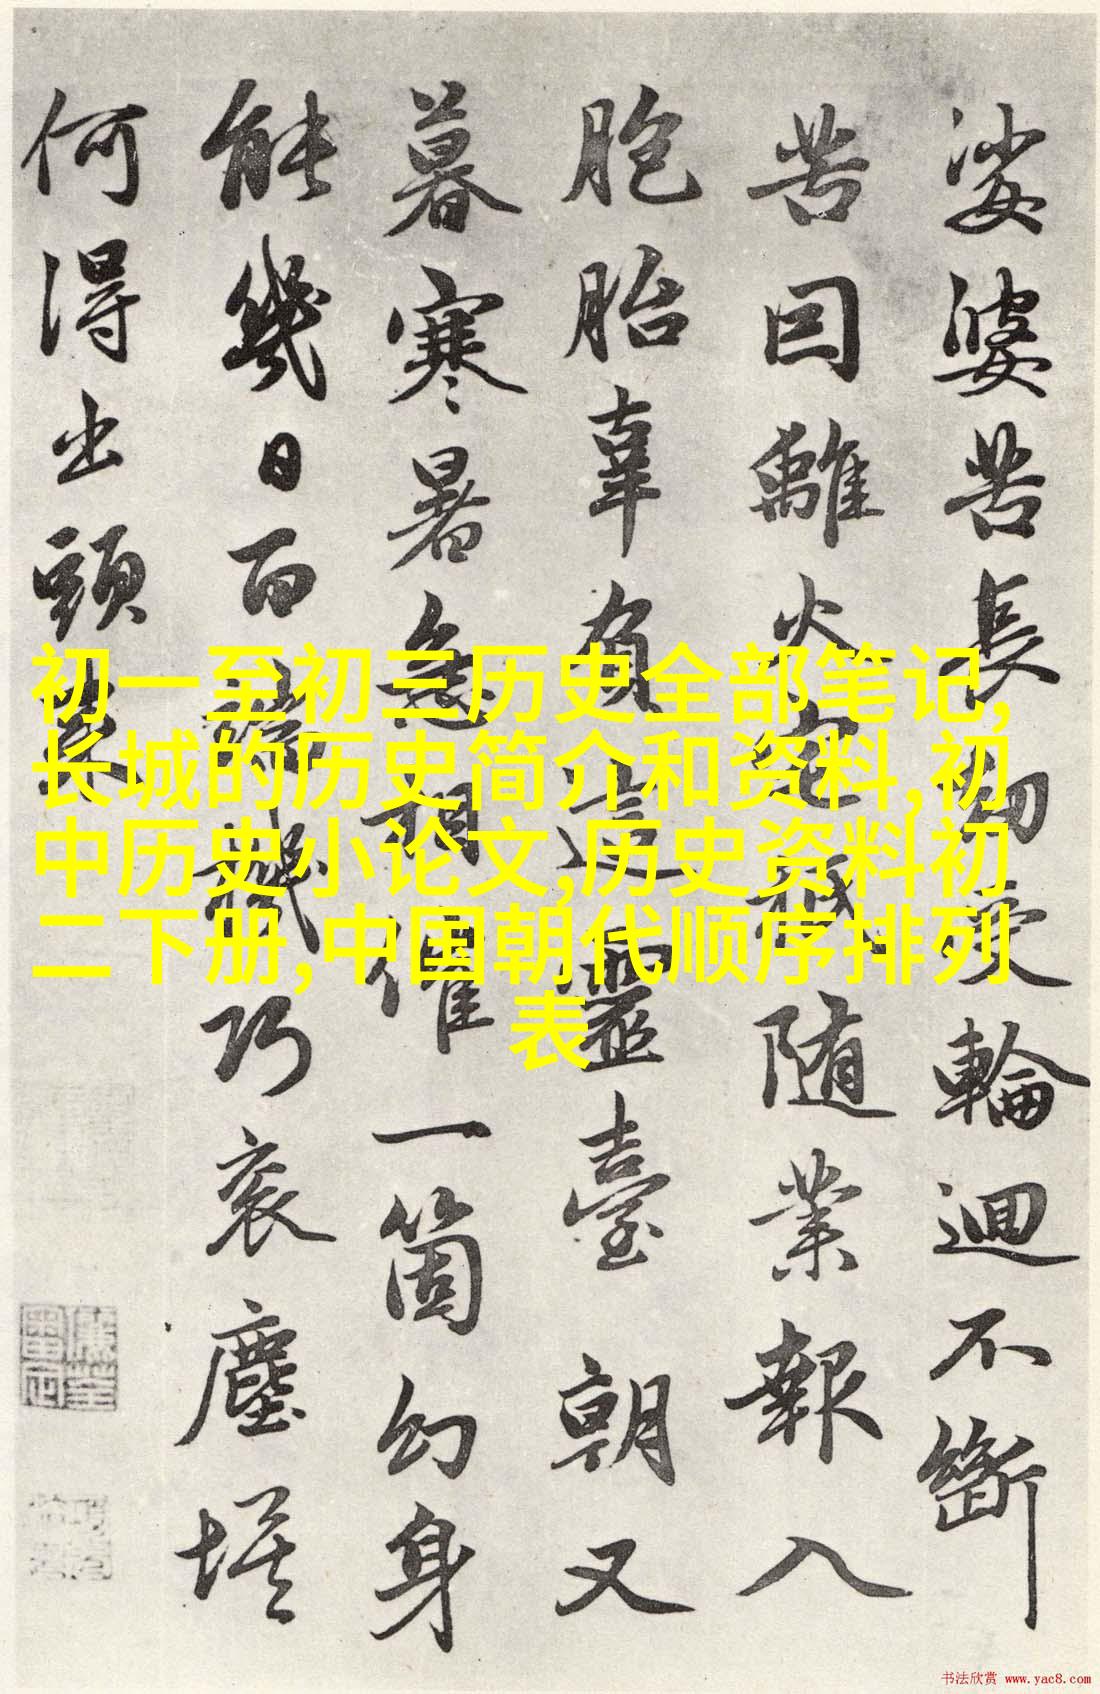 娑婆苦長劫受輪迴不斷
苦因離火宅難隨業報入
胞胎辜負這靈臺朝又
暮寒暑急相催一箇幻身
能幾日百端機巧衮塵埃
何得出頭來
初一至初三历史全部笔记,
长城的历史简介和资料,初
中历史小论文,历史资料初
二下册,中国朝代顺序排列
表
书法欣赏 www.yac8.com